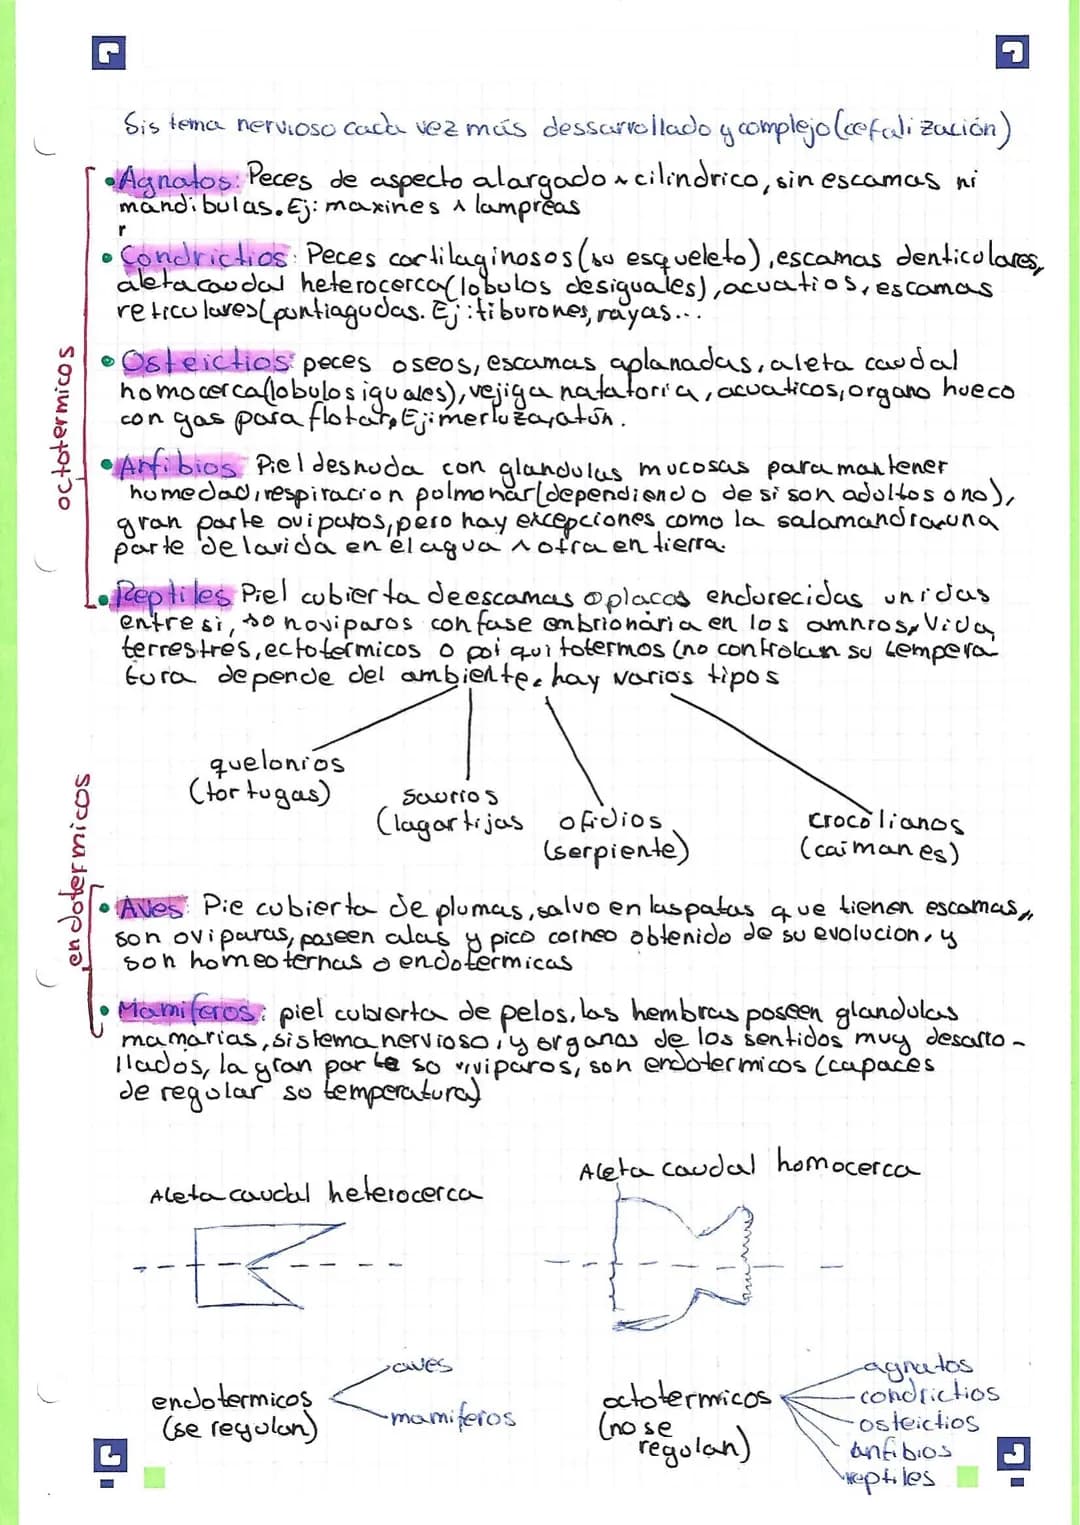 Sistema nervioso cada vez más dessarrollado y complejo (cefalización)
• Agnatos: Peces de aspecto alargado y cilindrico, sin escamas ni
mandibulas. Ej: maxines y lampreas
r
• Condrictios: Peces cartilaginosos (su esqueleto), escamas denticolares,
aleta caudal heterocerca (lobulos desiguales), acuatios, escamas
reticulares (puntiagudas. Ej: tiburones, rayas...
• Osteictios: peces oseos, escamas aplanadas, aleta caudal
homocerca (lobulos iguales), vejiga natatoria, acuaticos, organo hueco
con gas para flotar, Ej: merluza, atún.
octotermicos
• Anfibios Piel desnuda con glandulas mucosas para mantener
homedad, respiracion polmonar (dependiendo de si son adultos o no),
gran parte oviparos, pero hay excepciones como la salamandra, una
parte de la vida en el agua y otra en tierra.
• Reptiles Piel cubierta de escamas o placas endurecidas unidas
entre si, so noviparos con fase embrionaria en los amnios, Vida
terrestres, ectotermicos o poiquitotermos (no controlan su tempera
tura depende del ambiente, hay varios tipos
quelonios
(tortugas)
saurios
(lagartijas
ofidios
(serpiente)
crocolianos
(caimanes)
endotermicos
• Aves: Pie cubierta de plumas, salvo en las patas que tienen escamas,
son oviparas, poseen alas y pico corneo obtenido de su evolucion, y
son homeoternas o endotermicas
• Mamiferos: piel cubierta de pelos, las hembras poseen glandulas
mamarias, sistema nervioso, y organos de los sentidos muy desarro-
llados, la gran parte so viviparos, son endotermicos (capaces
de regular so temperatura)
Aleta caudal heterocerca
Aleta caudal homocerca
endotermicos
(se regulan)
aves
mamiferos
octotermicos
(no se
regulan)
agnatos
condrictios
osteictios
anfibios
reptiles